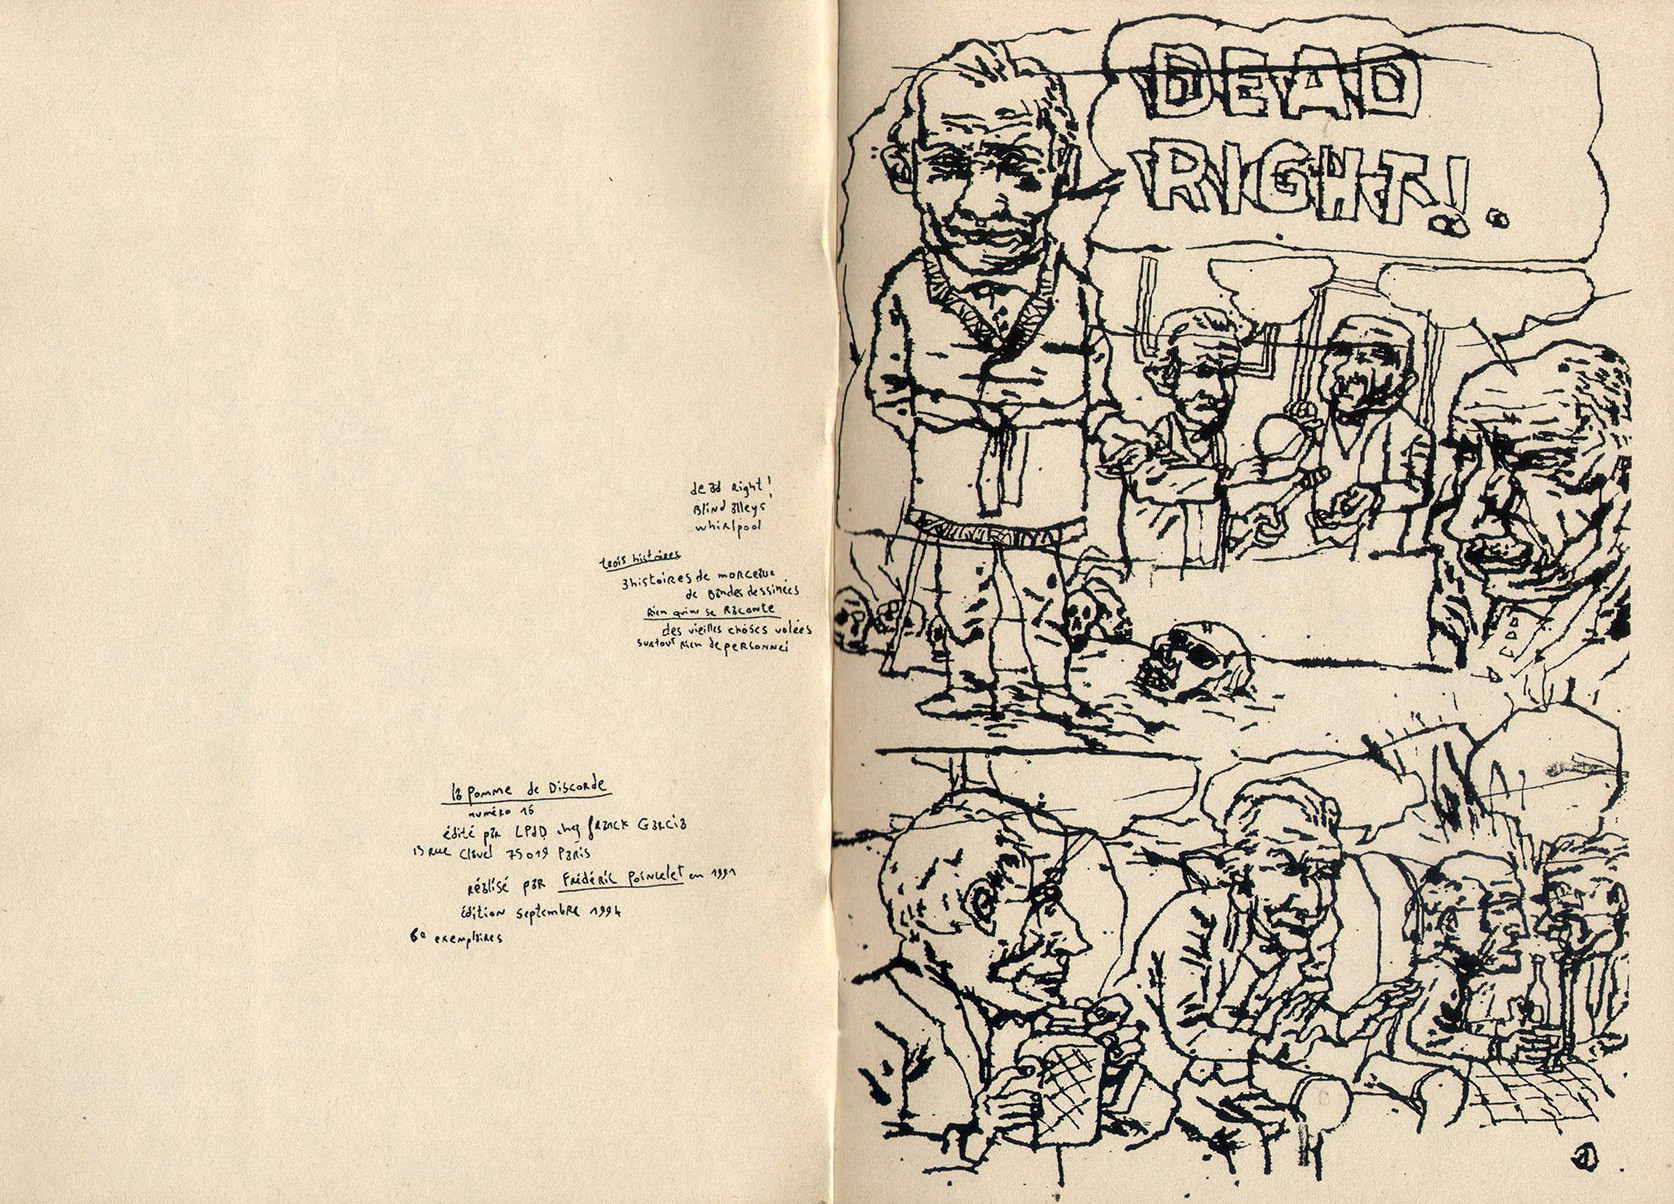 dead Right!
Blind alleys
whirlpool
trois histoires
3 histoires de morceaux
de Bandes dessinées
Rien qui ne se Raconte
des vieilles choses volées
surtout rien de personnel
la pomme de Discorde
numéro 16
édité par LPDD chez franck Garcia
13 rue Clavel 75019 Paris
réalisé par Frédéric Poincelet en 1991
édition septembre 1994
60 exemplaires
DEAD
RIGHT!.
1